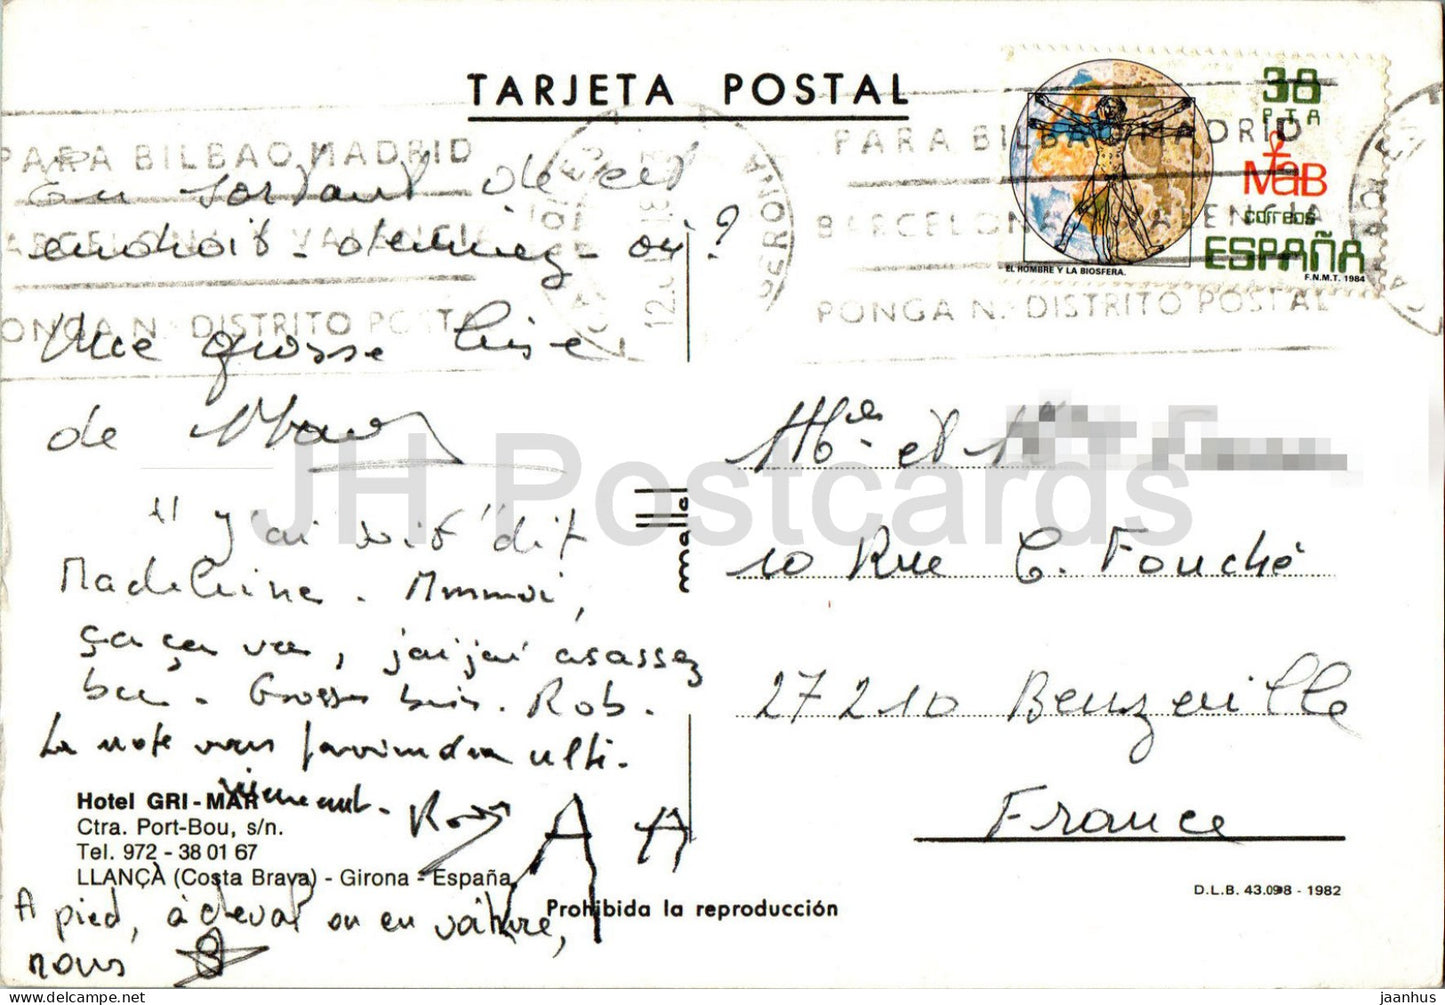 TARJETA POSTAL
38
PTA
MaB
correos
ESPAÑA
EL HOMBRE Y LA BIOSFERA.
F.N.M.T. 1984
PARA BILBAO, MADRID
BARCELONA Y VALENCIA
PONGA N.° DISTRITO POSTAL
PARA BILBAO, MADRID
BARCELONA VALENCIA
PONGA N.° DISTRITO POSTAL
GERONA
En sortant de cet
endroit - devinez - où ?
Une grosse bise
de
"J'ai soif" dit
Madeleine. Mmmoi,
ça ça va, j'aij'ai asassez
bu. Grosses bises. Rob.
La note vous parviendra ulté-
rieurement.
A A
Hotel GRI-MAR
Ctra. Port-Bou, s/n.
Tel. 972 - 38 01 67
LLANÇÀ (Costa Brava) - Girona - España
A pied, à cheval ou en voiture,
nous
Prohibida la reproducción
D.L.B. 43.098 - 1982
et
10 Rue C. Fouché
27210 Beuzeville
France
JH Postcards
https://www.delcampe.net
jaanhus